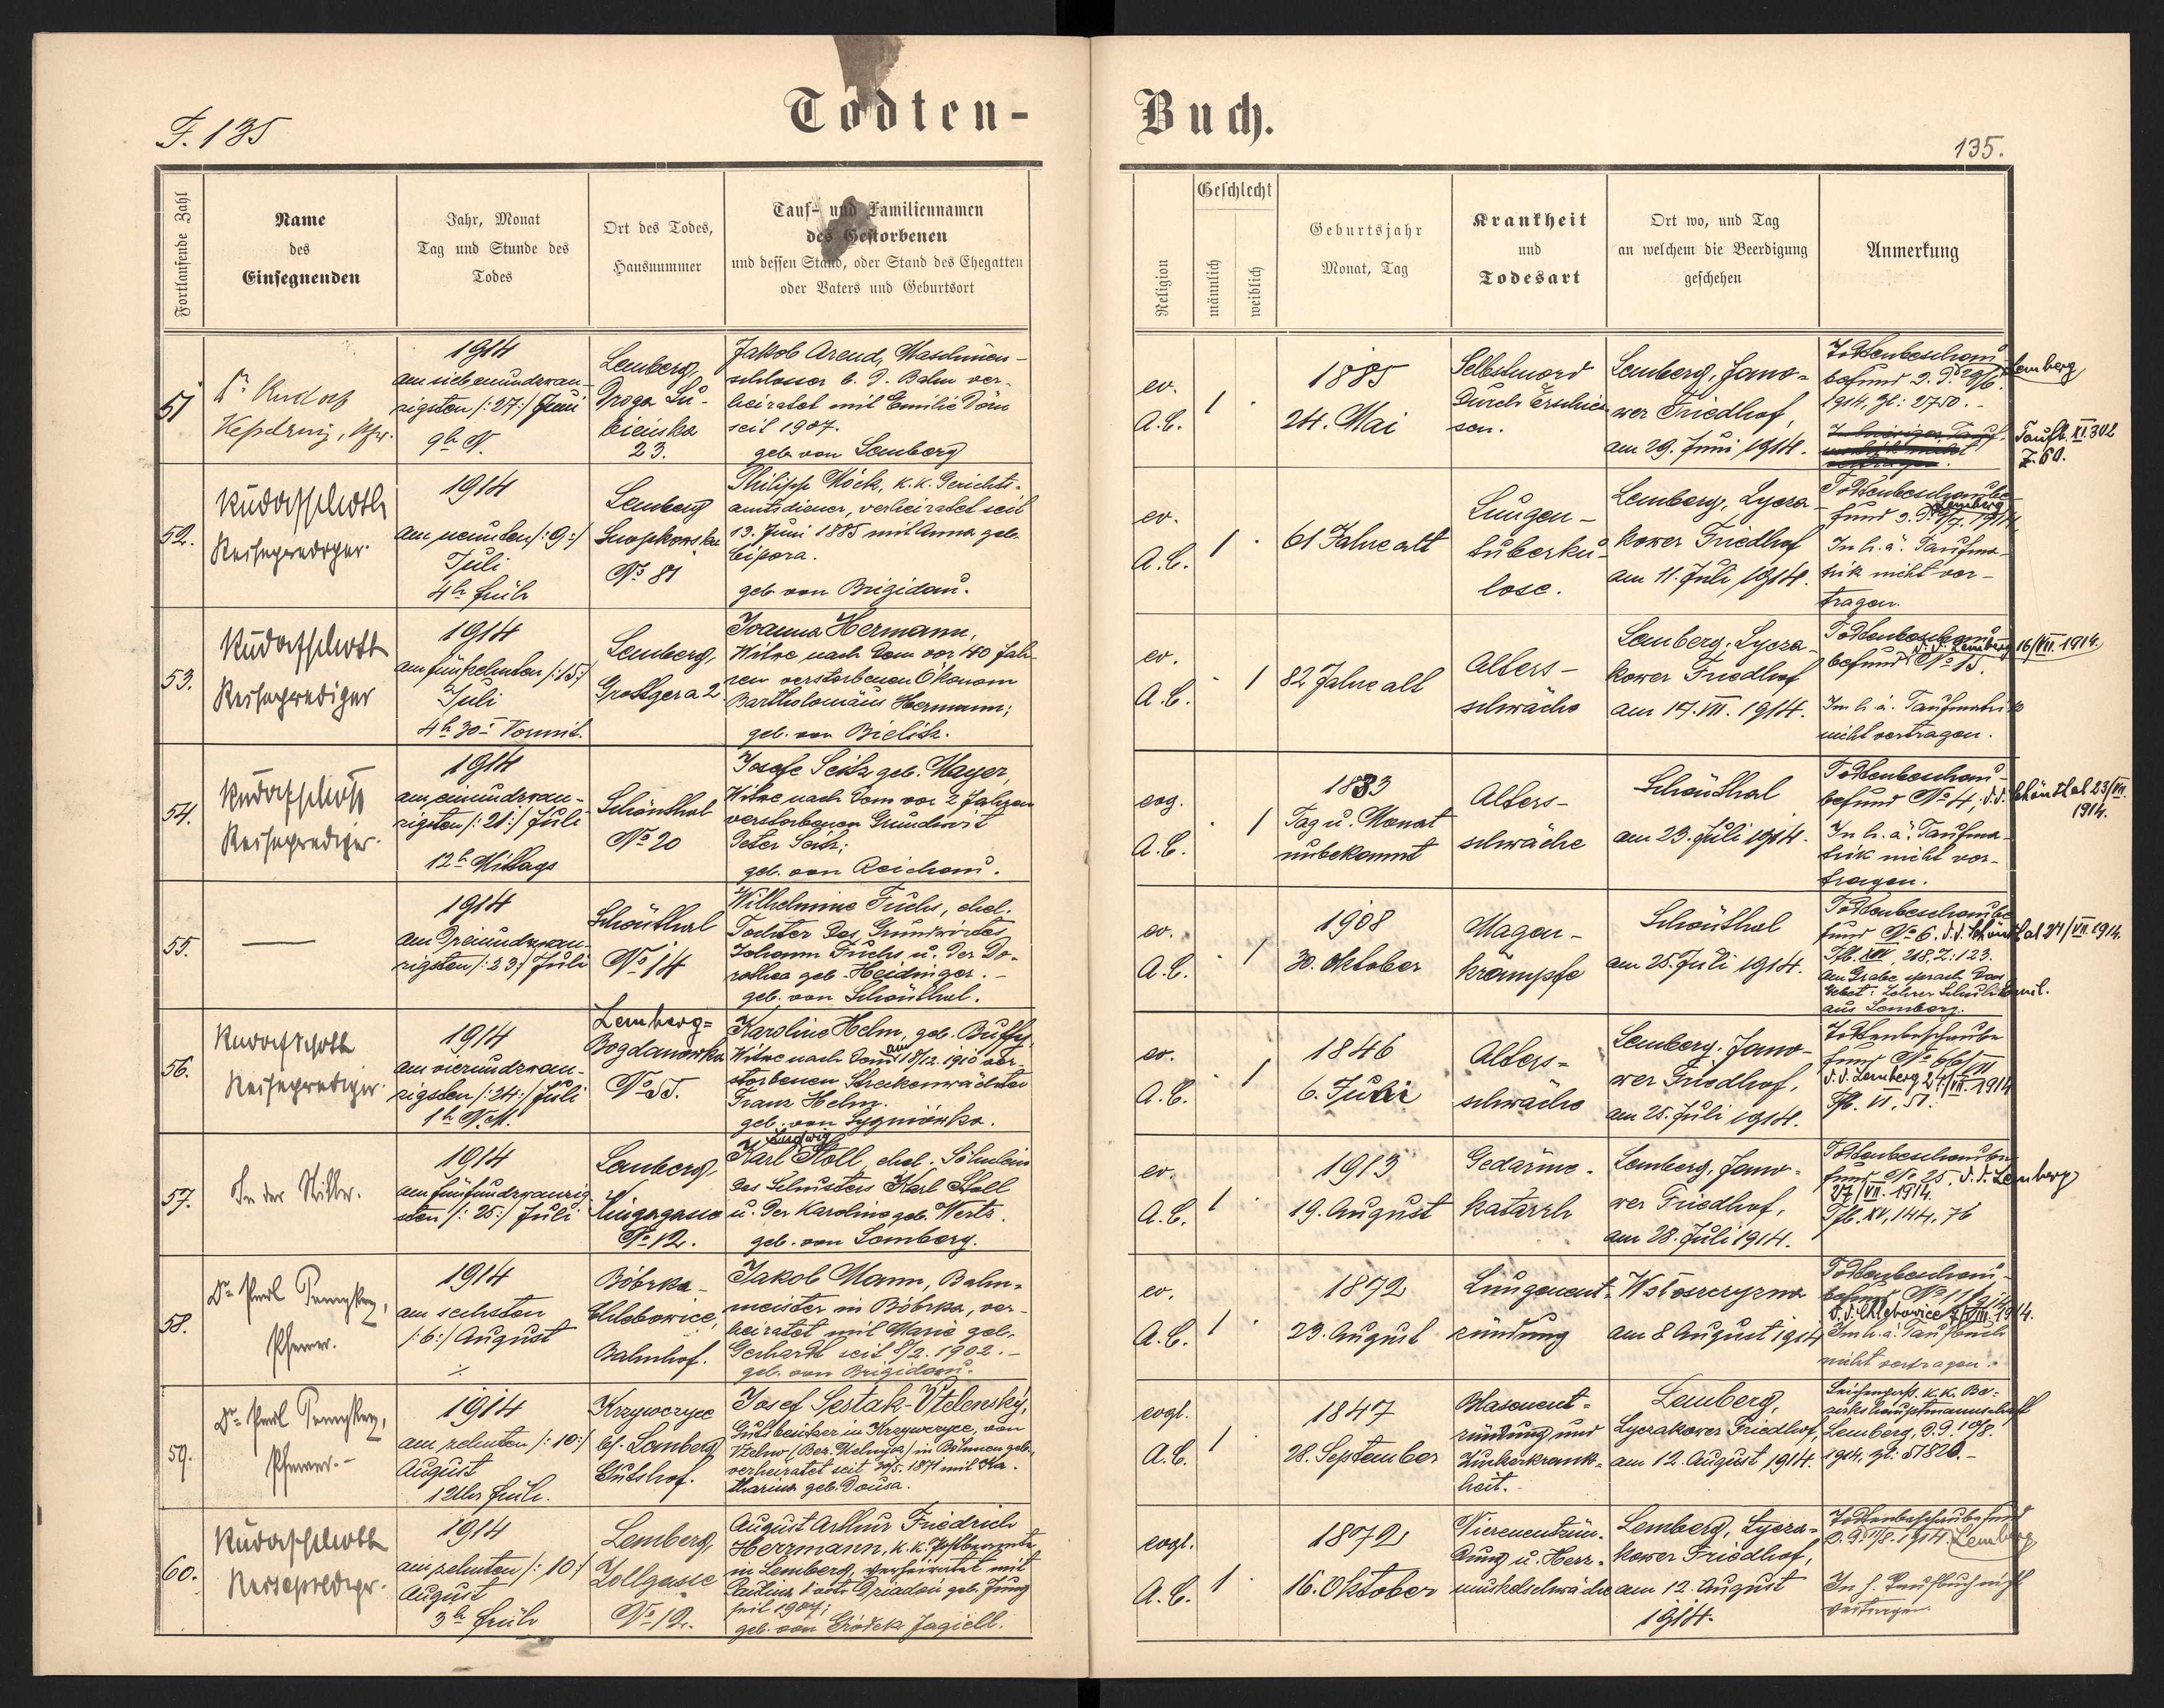 F. 135
Todten-
Buch.
135.
Fortlaufende Zahl
Name
des
Einsegnenden
Jahr, Monat
Tag und Stunde des
Todes
Ort des Todes,
Hausnummer
Tauf- und Familiennamen
des Gestorbenen
und dessen Stand, oder Stand des Ehegatten
oder Vaters und Geburtsort
Religion
Geschlecht
männlich
weiblich
Geburtsjahr
Monat, Tag
Krankheit
und
Todesart
Ort wo, und Tag
an welchem die Beerdigung
geschehen
Anmerkung
51
Dr. Rudolf
1914
am siebenundzwan-
zigsten /:27:/ Juni
9h N.
Lemberg,
Droga Lu-
bieńska
23.
Jakob Arend, Maschinen-
schlosser b. d. Bahn ver-
heiratet mit Emilie Dörn
seit 1907.
geb. von Lemberg
ev.
A.C.
1
1885
24. Mai
Selbstmord
durch Erschies-
sen.
Lemberg, Jano-
wer Friedhof,
am 29. Juni 1914.
Todtenbeschau-
befund d. d. 29/6. Lemberg
1914, Zl: 2750.
Taufb. XI. 302
Z. 60.
52.
Rudolf Schott
Reiseprediger
1914
am neunten /:9:/
Juli
4h früh
Lemberg
Snopkowska
No 81
Philipp Köck, k.k. Gerichts-
amtsdiener, verheiratet seit
13. Juni 1885 mit Anna geb.
Cipora.
geb von Brigidau.
ev.
A.C.
1
61 Jahre alt
Lungen-
tuberku-
lose.
Lemberg, Lycza-
kower Friedhof
am 11. Juli 1914.
Todtenbeschaube-
fund d. d. Lemberg 9/7. 1914
In h. ä. Taufma-
trik nicht vor-
tragen.
53.
Rudolf Schott
Reiseprediger
1914
am fünfzehnten /:15:/
Juli
4h 30- Vormit.
Lemberg,
Grottgera 2
Joanna Hermann,
Witwe nach dem vor 40 Jah-
ren verstorbenen Ökonom
Bartholomäus Hermann;
geb. von Bielitz.
ev.
A.C.
1
82 Jahre alt
Alters-
schwäche
Lemberg, Lycza-
kower Friedhof
am 17. VII. 1914.
Todtenbeschau-
befund No 15. d. d. Lemberg 16/VII. 1914.
Im h. ä. Taufmatrik
nicht vortragen.
54.
Rudolf Schott
Reiseprediger
1914
am einundzwan-
zigsten /:21:/ Juli
12h Mittags
Schönthal
No 20
Josefe Seitz geb. Mayer,
Witwe nach dem vor 2 Jahren
verstorbenen Grundwirt
Peter Seitz;
geb. von Reichau.
evg.
A.C.
1
1833
Tag u. Monat
unbekannt
Alters-
schwäche
Schönthal
am 23. Juli 1914.
Todtenbeschau-
befund No 4. d. d. Schönthal 23/VII.
1914.
In h. ä. Taufma-
trik nicht vor-
tragen.
55.
1914
am dreiundzwan-
zigsten /:23:/ Juli
Schönthal
No 14
Wilhelmine Fuchs, ehel.
Tochter des Grundwirtes
Johann Fuchs u. der Do-
rothea geb. Heidinger.
geb. von Schönthal.
ev.
A.C.
1
1908
30. Oktober
Magen-
krämpfe
Schönthal
am 25. Juli 1914.
Todtenbeschaube-
fund No 6. d. d. Schönthal 24/VII. 1914.
Tfb. XIV, 218, Z: 123.
Am Grabe sprach das
Gebet: Lehrer
aus Lemberg.
56.
Rudolf Schott
Reiseprediger
1914
am vierundzwan-
zigsten /:24:/ Juli
1h N.M.
Lemberg-
Bogdanowka
Karoline Helm, geb. Buffy
Witwe nach dem am 18/12. 1910 ver-
storbenen Streckenwächter
Franz Helm.
geb. von Sygniówka.
ev.
A.C.
1
1846
6. Juli
Alters-
schwäche
Lemberg, Jano-
wer Friedhof,
am 25. Juli 1914.
Todtenbeschaube-
fund No 66/VII
d. d. Lemberg 24/VII. 1914
Tfb. VI, 51.
57.
1914
am fünfundzwanzig-
sten /:25:/ Juli
Lemberg,
No 12.
Karl Ludwig Stoll, ehel. Söhnlein
des Schusters Karl Stoll
u. der Karoline geb. Werts.
geb. von Lemberg.
ev.
A.C.
1
1913
19. August
Gedärme-
katarrh
Lemberg, Jano-
wer Friedhof,
am 28. Juli 1914.
Todtenbeschaube-
fund No 25. d. d. Lemberg
27/VII. 1914.
Tfb. XV, 144, 76
58.
Pfarrer.
1914
am sechsten
/:6:/ August
Bóbrka-
Chlebowice,
Bahnhof.
Jakob Mann, Bahn-
meister in Bóbrka, ver-
heiratet mit Marie geb.
Gerhardt seit 8/2. 1902.
geb. von Brigidau.
ev.
A.C.
1
1872
23. August
Lungenent-
zündung
am 8 August 1914
Todtenbeschau-
d. d. Chlebowice 7/VIII. 1914.
Im h. ä. Taufbuch
nicht vortragen.
59.
Pfarrer.
1914
am zehnten /:10:/
August
1 Uhr früh.
Krzywczyce
bf. Lemberg
Gutshof.
Josef Sestak-Vtelensky,
Gutsbesitzer in Krzywczyce, von
Vtelno (Bez. Melnyk) in Böhmen geb.,
verheiratet seit 30/5. 1871 mit Ka-
tharina geb. Dousa.
evgl.
A.C.
1
1847
28. September
Blasenent-
zündung und
Zuckerkrank-
heit.
Lemberg,
Lyczakower Friedhof,
am 12. August 1914.
k.k. Be-
zirkshauptmannschaft
Lemberg, d.d. 10/8.
1914, Zl: 51820.
60.
Rudolf Schott
Reiseprediger
1914
am zehnten /:10:/
August
3h früh
Lemberg,
Zollgasse
No 12.
August Arthur Friedrich
Herrmann, k.k. Postbeamte
in Lemberg, verheiratet mit
geb. Jung
seit 1907;
geb. von Gródek Jagiell.
evgl.
A.C.
1
1872
16. Oktober
Nierenentzün-
dung u. Herz-
muskelschwäche
Lemberg, Lycza-
kower Friedhof,
am 12. August
1914.
Todtenbeschaubefund
d. d. 11/8. 1914 Lemberg
In h. Taufbuch nicht
vortragen.